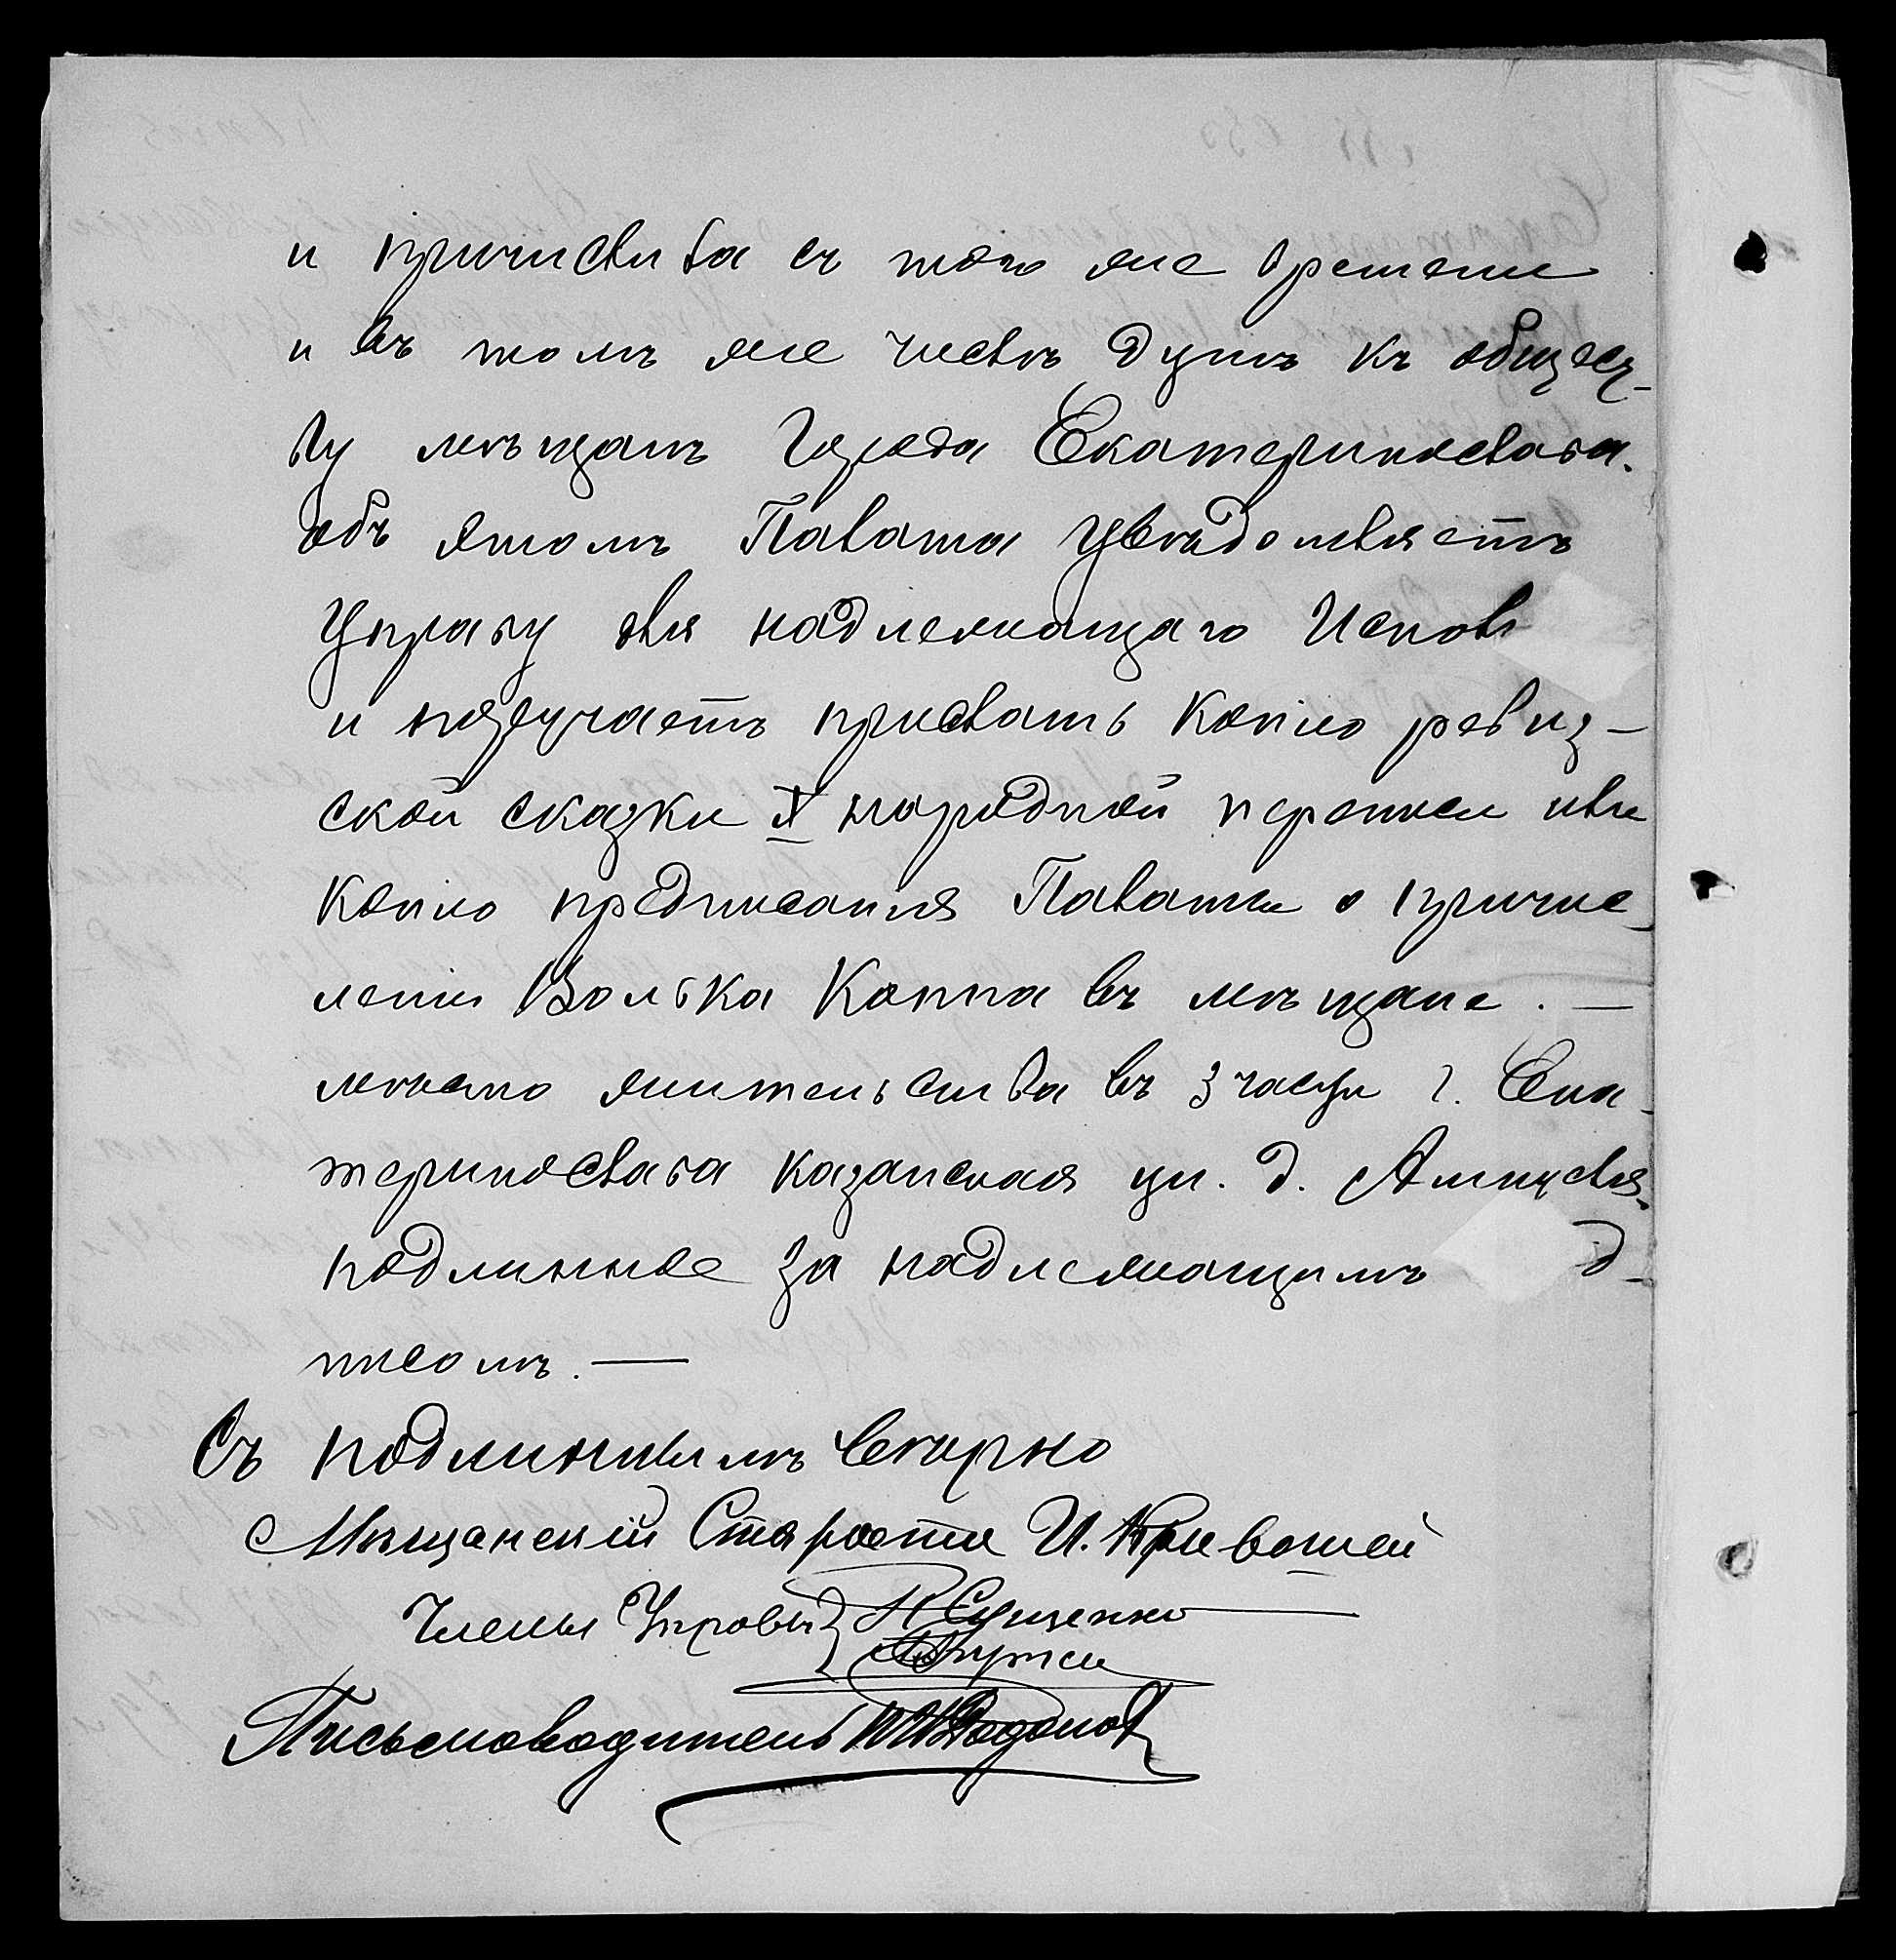 и причислила съ того же времени
и въ томъ же числѣ душъ къ общест-
ву мѣщанъ города Екатеринослава.
объ этомъ Палата увѣдомляетъ
Управу для надлежащаго Исполн
и поручаетъ прислать копію ревиз-
ской сказки X народной переписи или
копію предписанія Палаты о причис-
леніи Волька Коппа въ мѣщане. —
мѣсто жительства въ 3 части г. Ека-
теринослава казанская ул. д.
подлинное за надлежащимъ д-
писомъ. —
Съ подлиннымъ вѣрно
Мѣщанскій Староста И. Кривошей
Члены Управы Сущенко
Письмоводитель